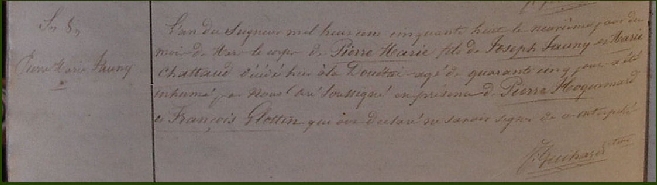 Sep
Pierre Marie Launy
L'an du Seigneur mil huit cent cinquante huit le neuvième jour du
mois de Mai le corps de Pierre Marie fils de Joseph Launy et Marie
Chattaud décédé hier à la agé de quarante cinq jours a été
inhumé par Nous curé soussigné en présence de Pierre Hoguimard
& François Glottin qui ont déclaré ne savoir signer de ce interpellés
J. Guichard